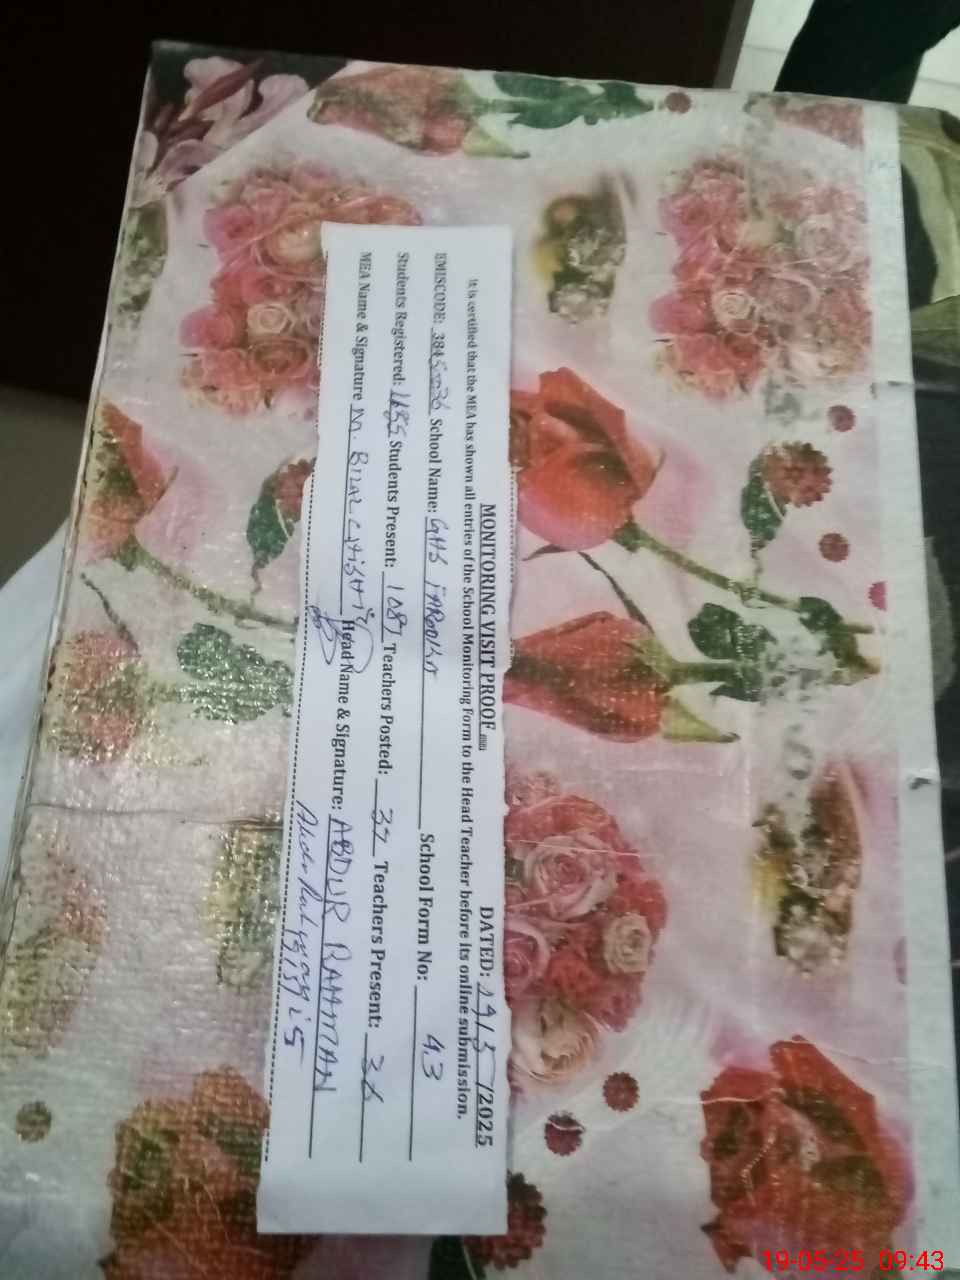 MONITORING VISIT PROOF DATED: 19/5/2025
It is certified that the MEA has shown all entries of the School Monitoring Form to the Head Teacher before its online submission.
EMISCODE: School Name: GHS FAROOKA School Form No: 43
Students Registered: 1185 Students Present: 1087 Teachers Posted: 37 Teachers Present: 36
MEA Name & Signature M. Head Name & Signature: ABDUR RAHMAN
19-05-25 09:43